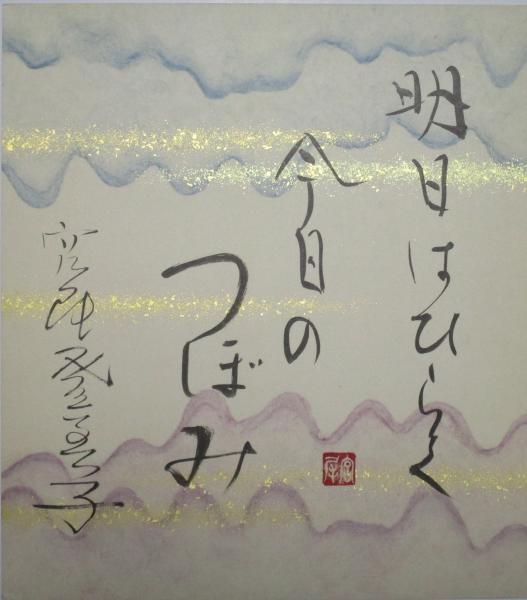 明日はひらく
今日の
つぼみ
宮尾登美子